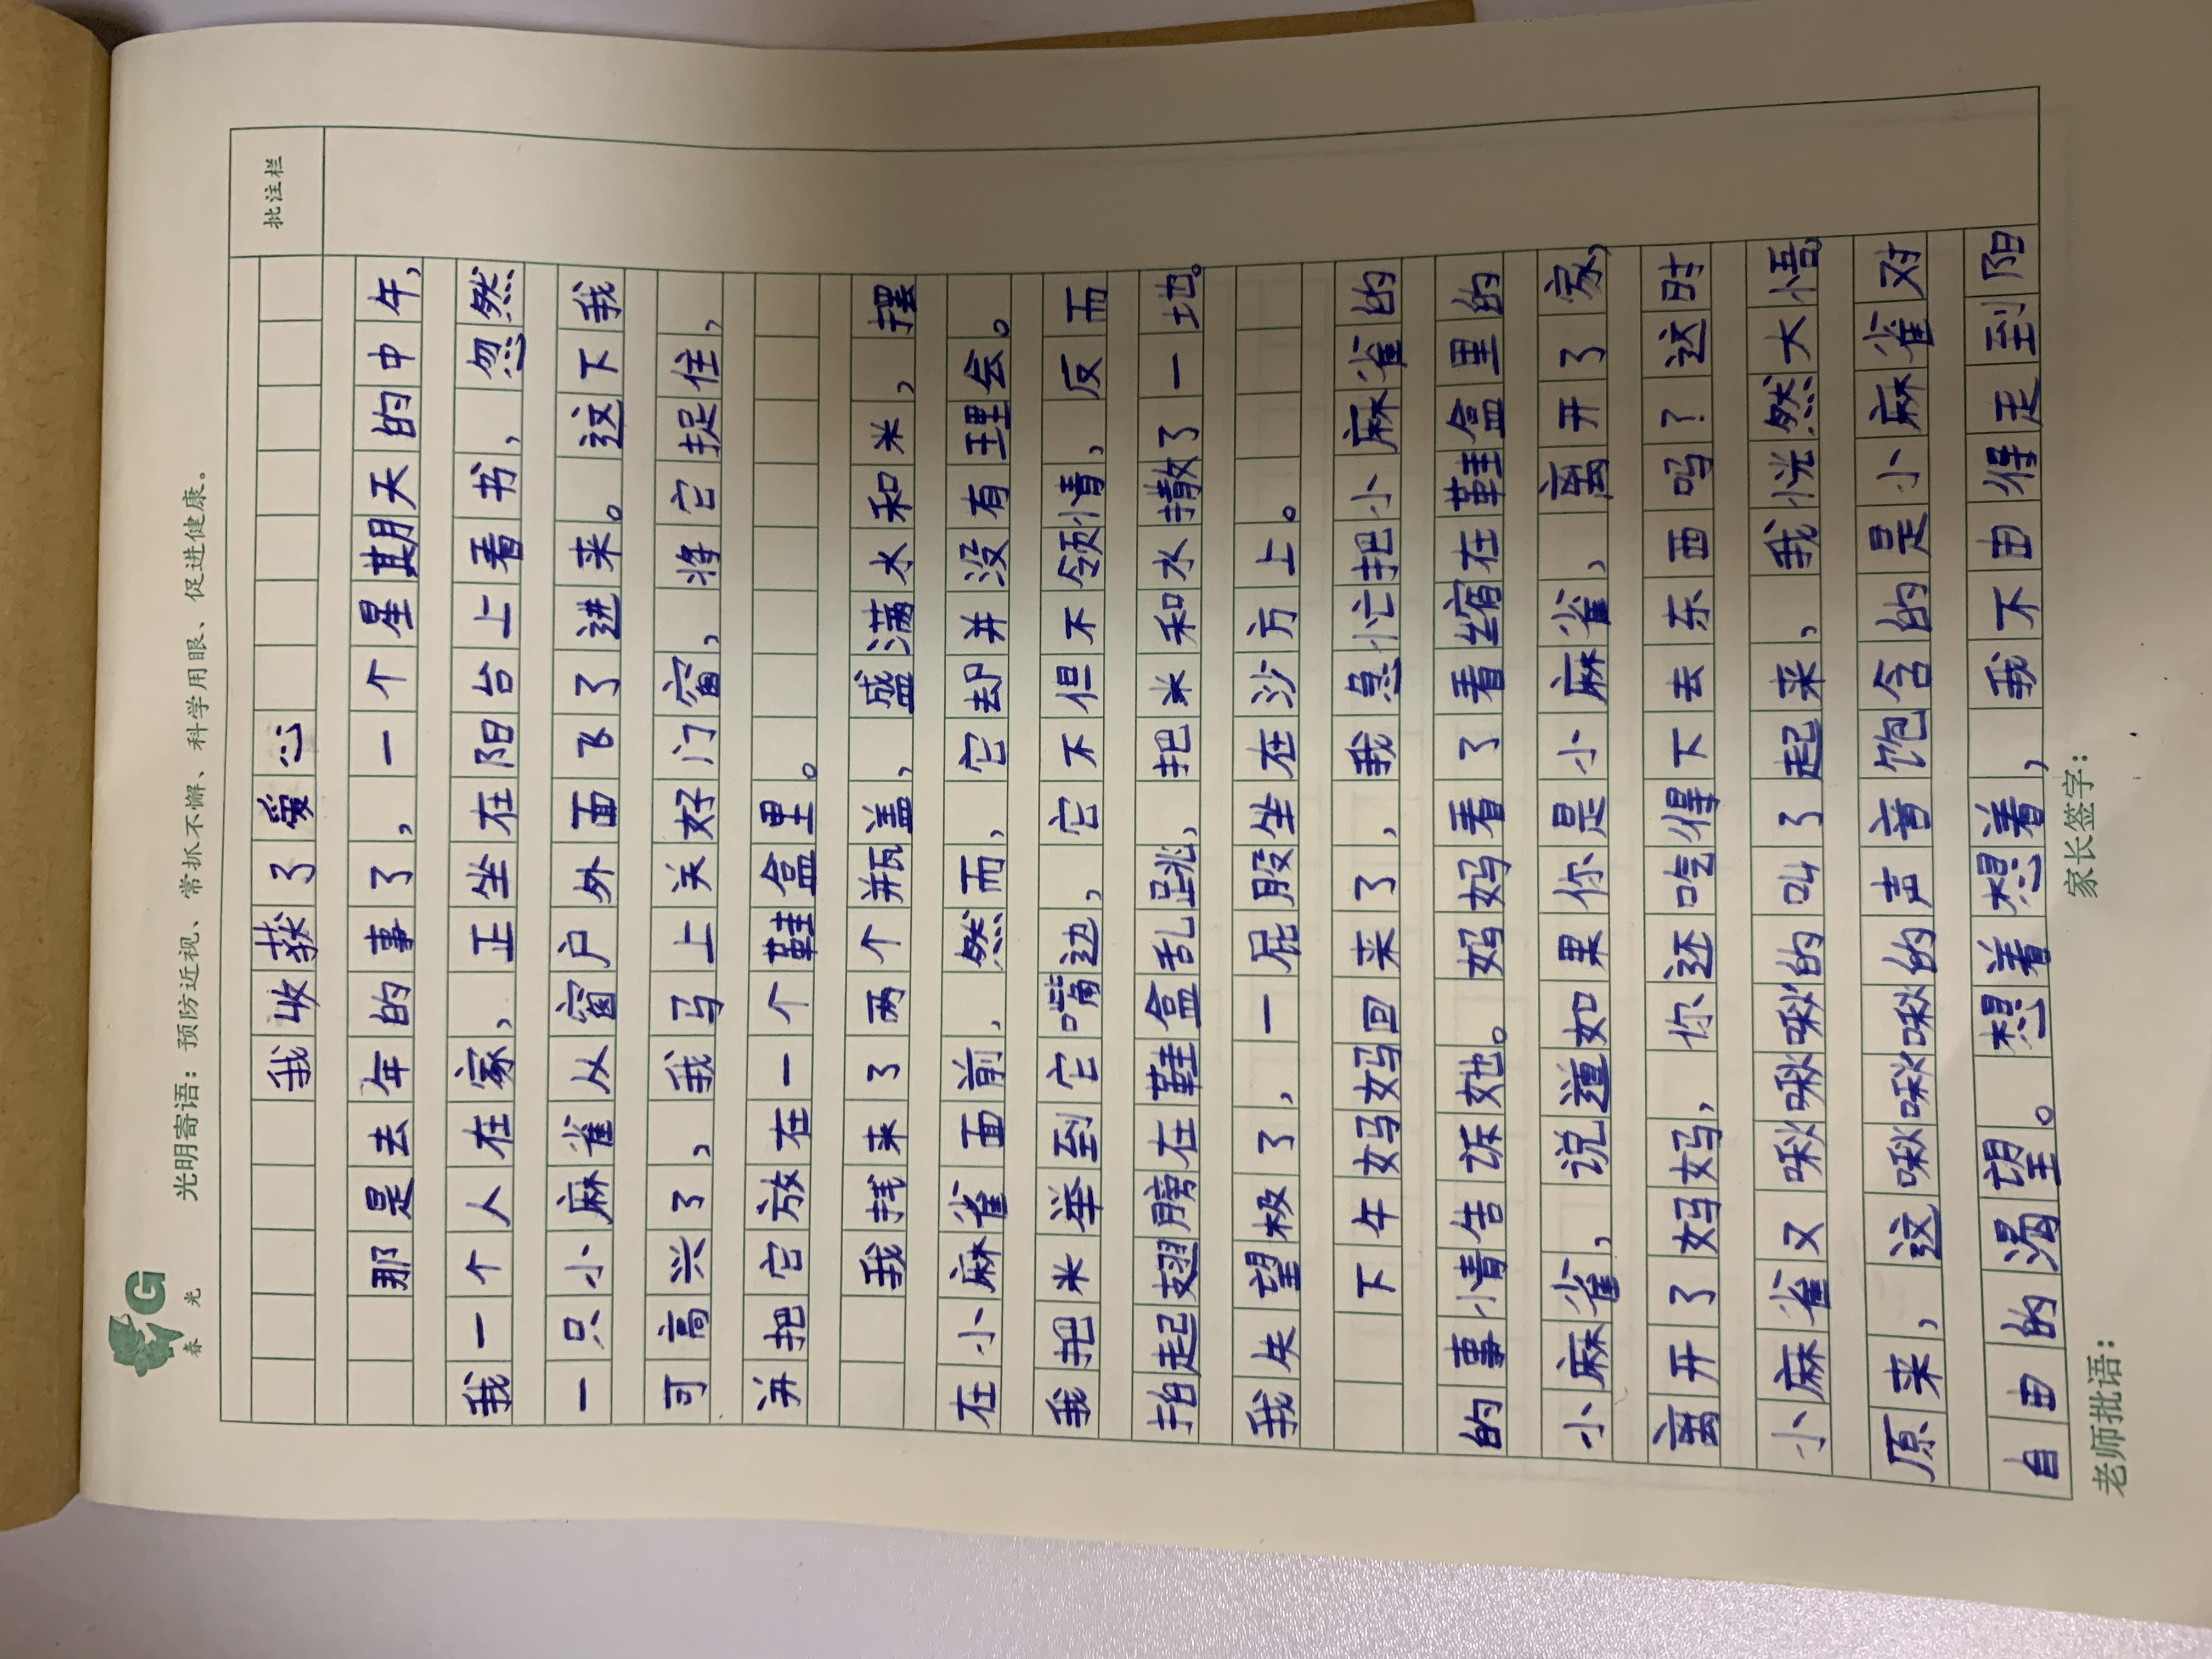 春光
光明寄语：预防近视、常抓不懈、科学用眼、促进健康。
批注栏
我收获了爱心
那是去年的事了，一个星期天的中午，
我一个人在家，正坐在阳台上看书，忽然
一只小麻雀从窗户外面飞了进来。这下我
可高兴了，我马上关好门窗，将它捉住，
并把它放在一个鞋盒里。
我找来了两个瓶盖，盛满水和米，摆
在小麻雀面前，然而，它却并没有理会。
我把米举到它嘴边，它不但不领情，反而
抬起翅膀在鞋盒乱跳，把米和水撒了一地。
我失望极了，一屁股坐在沙方上。
下午妈妈回来了，我急忙把小麻雀的
的事情告诉她。妈妈看了看缩在鞋盒里的
小麻雀，说道如果你是小麻雀，离开了家，
离开了妈妈，你还吃得下去东西吗？这时
小麻雀又啾啾啾的叫了起来，我恍然大悟，
原来，这啾啾啾的声音饱含的是小麻雀对
自由的渴望。想着想着，我不由得走到阳
老师批语：
家长签字：